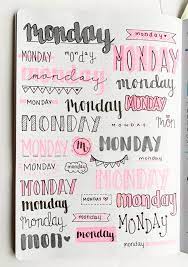 monday
monday
MONDAY
monday
MONDAY
monday
MONDAY
MONDAY
monday
MONDAY
monday
MONDAY
monday
mon
MONDAY
monday
MONDAY
M
MONDAY
monday
MONDAY
monday
MONDAY
monday
MONDAY
MONDAY
mon
monday